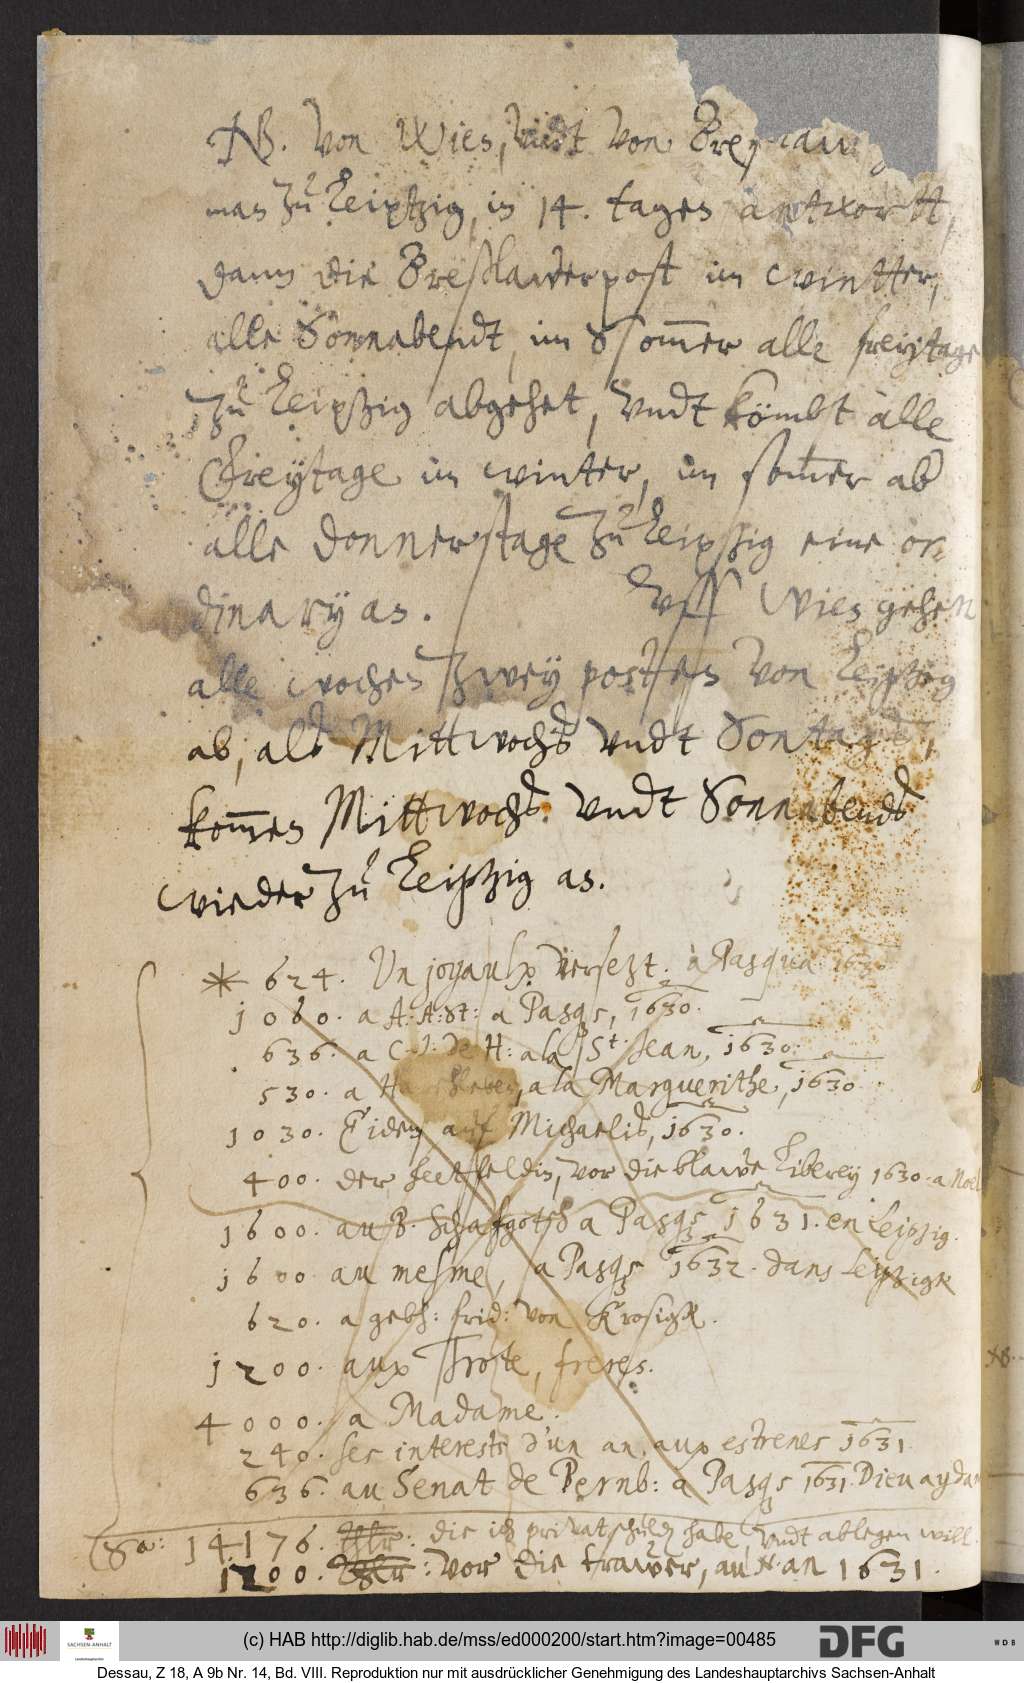 NB. Von Wien, vndt Von Breßlaw
man zu Leiptzig, in 14. tagen antwortt,
dann die Breßlawer post im wintter,
alle Sonnabendt, im Sommer alle freytage
zu Leiptzig abgehet, vndt kömbt alle
Freytage im winter, im sommer ab
alle donnerstage zu Leiptzig eine or
dinary an. Vff Wien gehen
alle wochen zwey posten Von Leiptzig
ab, als Mittwochs vndt Sontags,
kommen Mittwochs vndt Sonnabends
wieder zu Leiptzig an.
* 624. Un joyaulx versezt. à Pasqua 1630
1060. a A: A: St: a Pasqs, 1630.
636. a C: de H: a la St. Jean, 1630.
530. a a la Marguerithe, 1630
1030. Eiden auf Michaelis, 1630.
400. der vor die blawe Liberey 1630. a Noel
1600. au B. Schafgotsch a Pasqs 1631. en Leipzig.
1600 au mesme, a Pasqs 1632. dans Leipzigk
620. a gebh: frid: von Krosigk.
1200. aux Trote, freres.
4000. a Madame.
240. ses interests d'un an, aux estrenes 1631
636. au Senat de Bernb: a Pasqs 1631. Dieu aydan
Sa: 14176. Thlr: die ich privatschulden habe, vndt ablegen will.
1200. Thlr: vor die trawer, au N. an 1631.
(c) HAB http://diglib.hab.de/mss/ed000200/start.htm?image=00485
SACHSEN-ANHALT
DFG
WDB
Dessau, Z 18, A 9b Nr. 14, Bd. VIII. Reproduktion nur mit ausdrücklicher Genehmigung des Landeshauptarchivs Sachsen-Anhalt